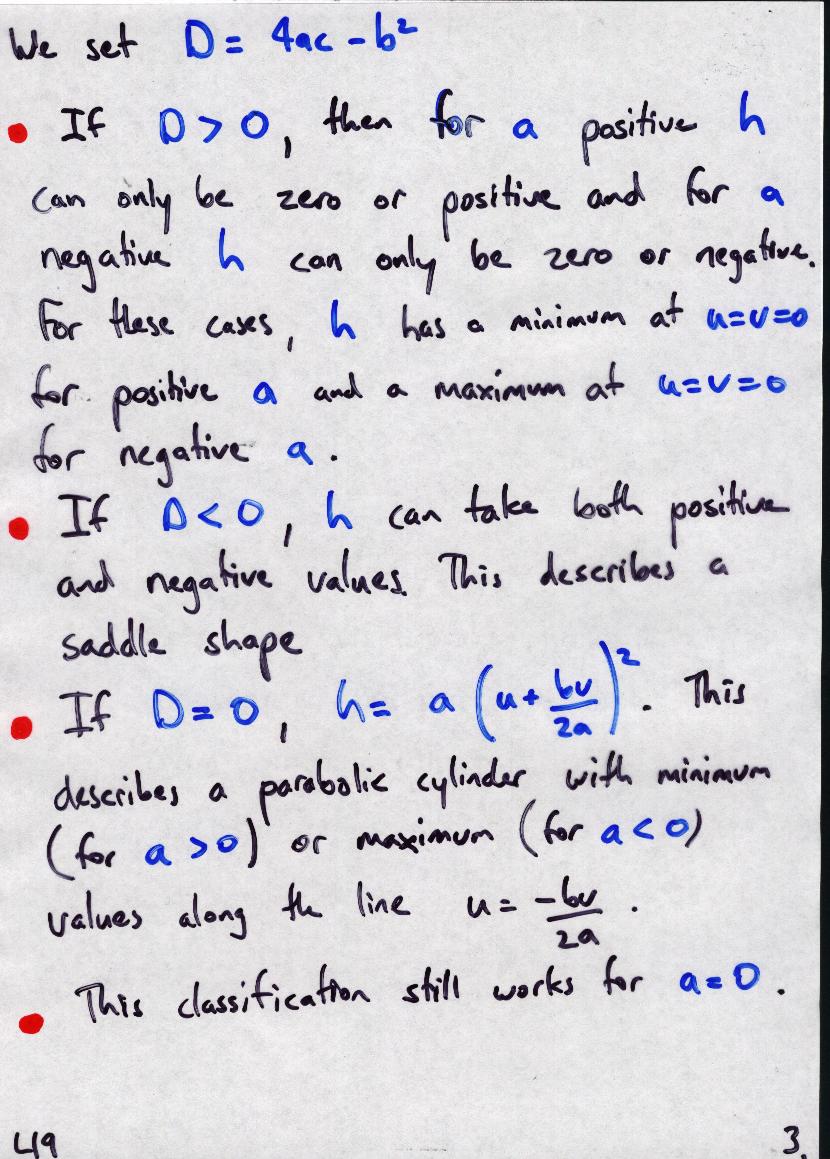 We set D = 4ac - b²
• If D > 0, then for a positive h
can only be zero or positive and for a
negative h can only be zero or negative.
For these cases, h has a minimum at u=v=0
for positive a and a maximum at u=v=0
for negative a.
• If D < 0, h can take both positive
and negative values. This describes a
saddle shape
• If D = 0, h = a (u + bv/2a)². This
describes a parabolic cylinder with minimum
(for a > 0) or maximum (for a < 0)
values along the line u = -bv/2a.
• This classification still works for a = 0.
L19 3.